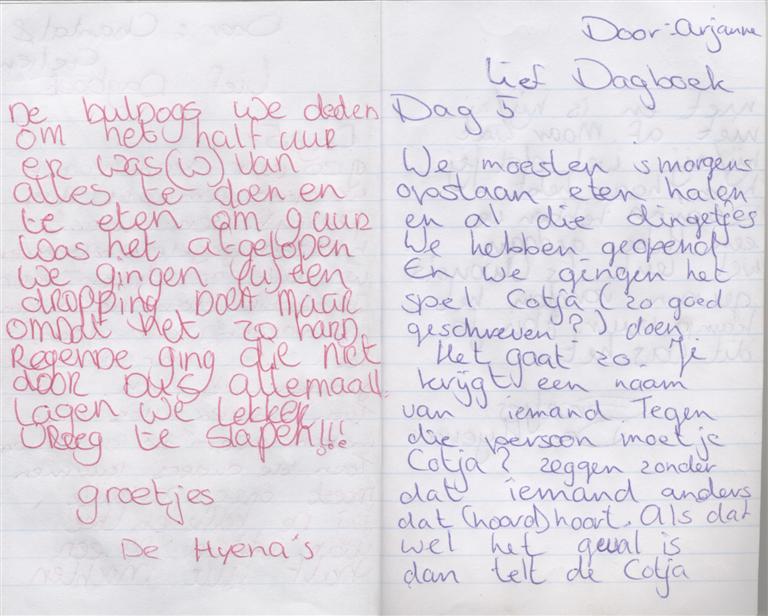 De bulpogs we deden
om het half uur
er was(w) van
alles te doen en
te eten om 9 uur
was het afgelopen
we gingen (w) een
dropping doen maar
omdat het zo hard
Regende ging die niet
door Dus allemaal
Lagen we lekker
vreeg te slapen!!!
groetjes
De Hyena's
Door: Arjanne
lief Dagboek
Dag 5
We moesten s'morgens
opstaan eten halen
en al die dingetjes
We hebben geopend
En we gingen het
spel Cotja (zo goed
geschreven?) doen
Het gaat zo. Je
krijgt een naam
van iemand Tegen
die persoon moet je
Cotja? zeggen zonder
dat iemand anders
dat (hoord) hoort. Als dat
wel het geval is
dan telt de Cotja